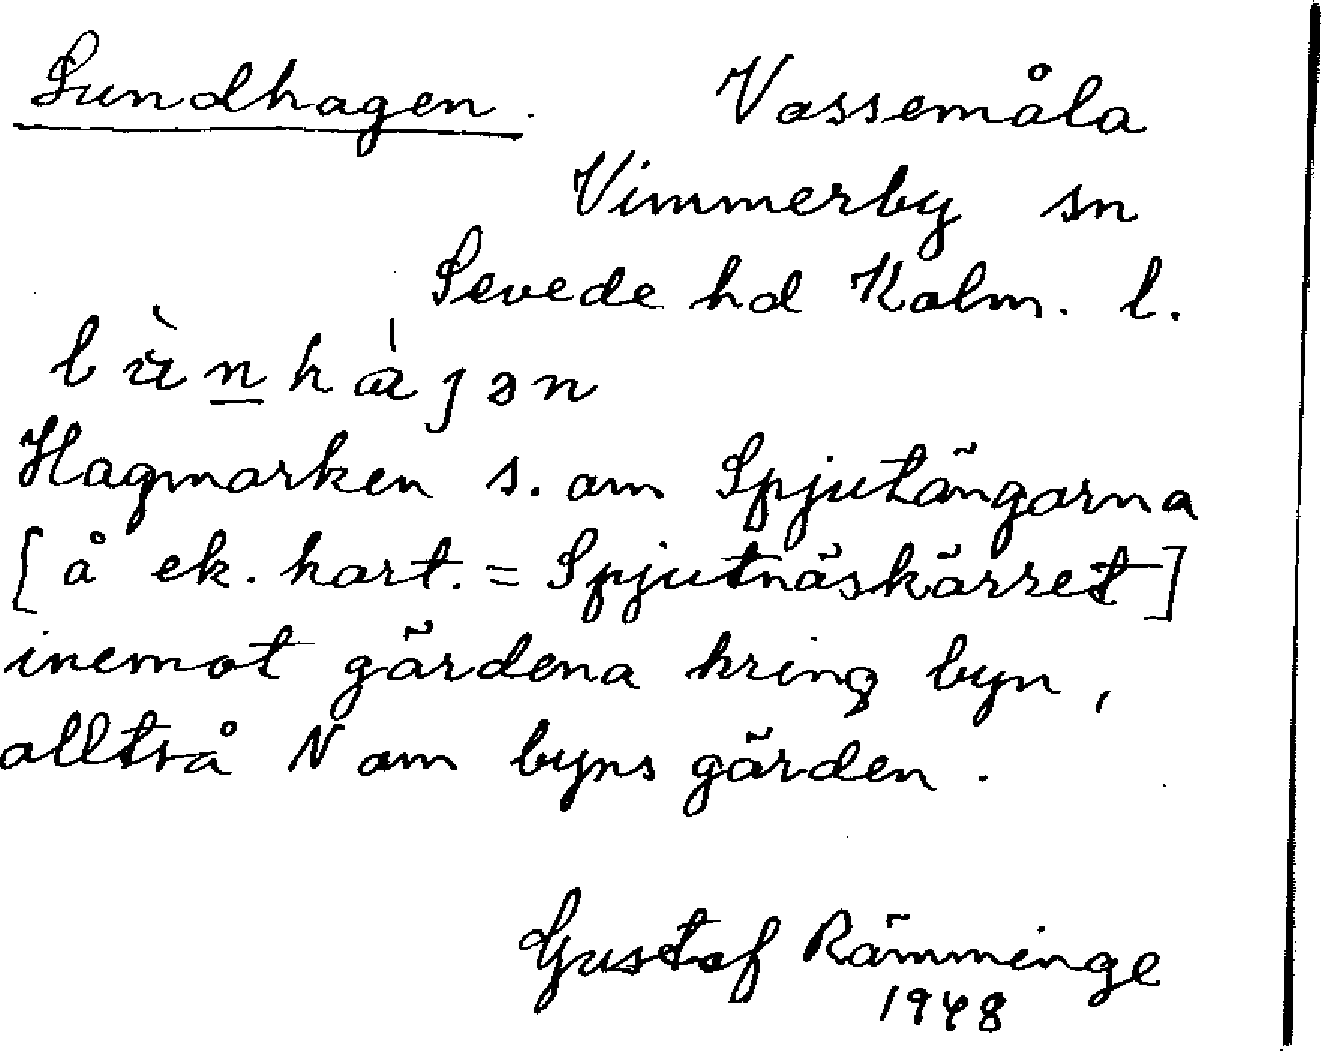 Lundhagen. Vassemåla
Vimmerby sn
Sevede hd Kalm. l.
l ù n̲ h à j ə n
Hagmarken s. om Spjutängarna
[å ek. kart. = Spjutnäskärret]
inemot gärdena kring byn,
alltså N om byns gärden.
Gustaf Rämminge
1948